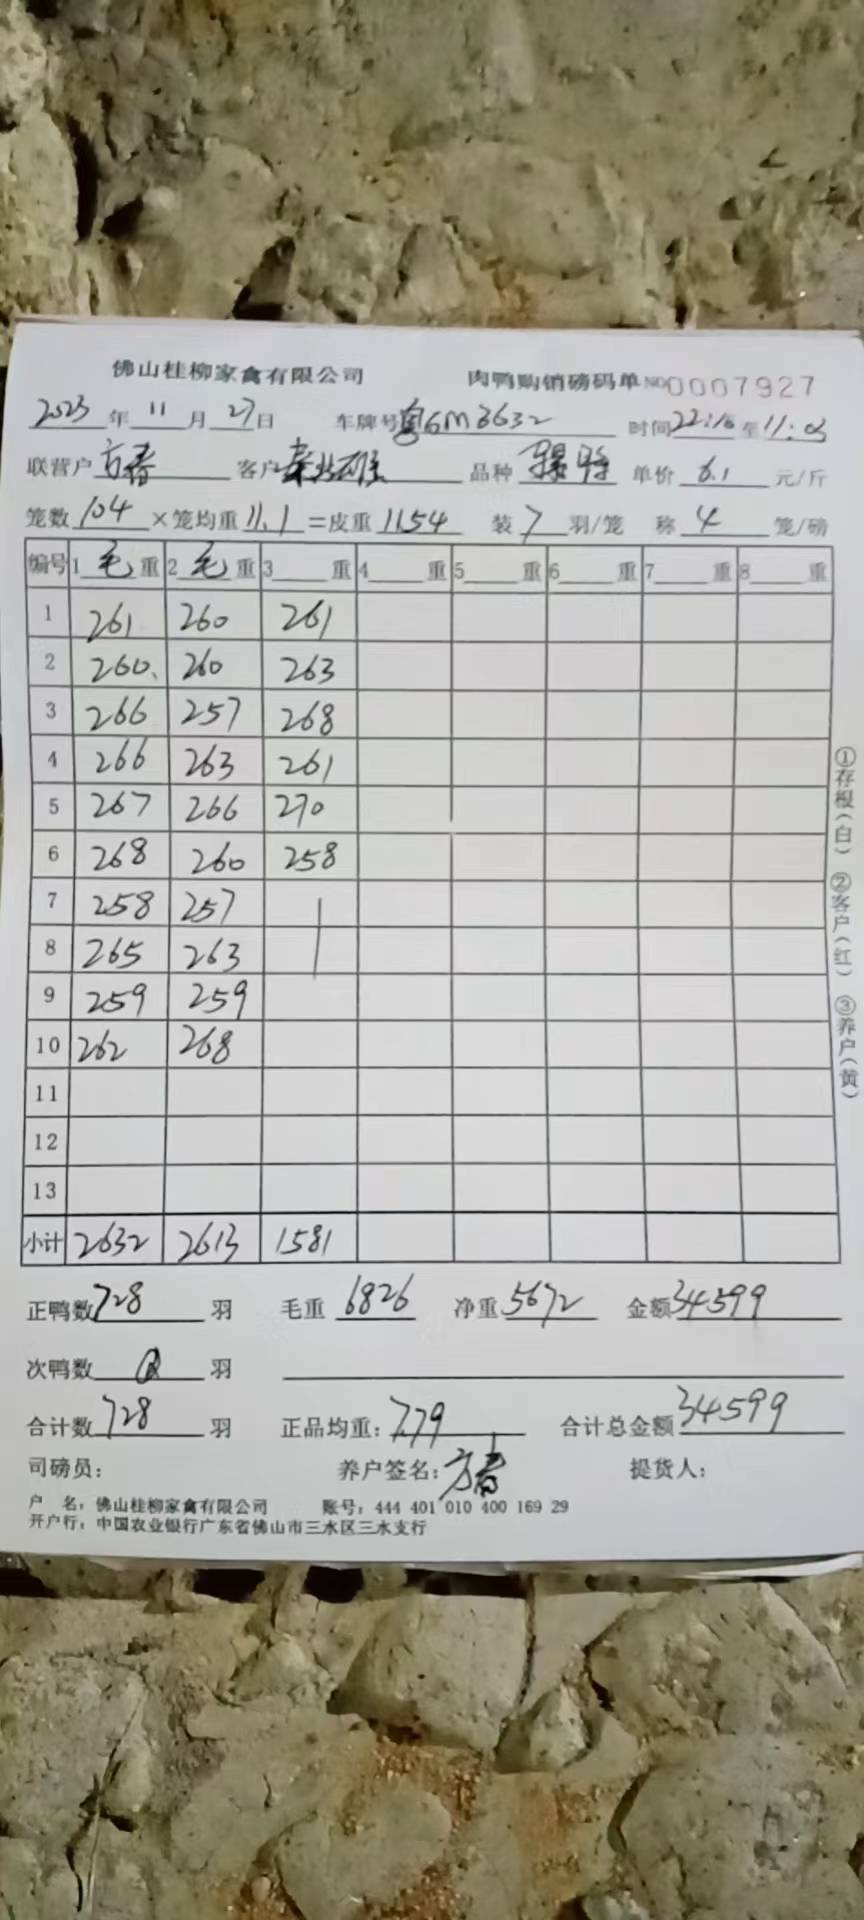 佛山桂柳家禽有限公司 肉鸭购销磅码单 NO 0007927
2023年11月27日 车牌号粤GM3632 时间22:10至11:03
联营户方春 客户 品种 单价6.1元/斤
笼数104×笼均重11.1=皮重1154 装7羽/笼 称4笼/磅
编号 1毛重 2毛重 3重 4重 5重 6重 7重 8重
1 261 260 261
2 260 260 263
3 266 257 268
4 266 263 261
5 267 266 270
6 268 260 258
7 258 257
8 265 263
9 259 259
10 262 268
11
12
13
小计 2632 2613 1581
正鸭数728羽 毛重6826 净重5672 金额34599
次鸭数0羽
合计数728羽 正品均重:7.79 合计总金额34599
司磅员: 养户签名:方春 提货人:
户 名:佛山桂柳家禽有限公司 账号:444 401 010 400 169 29
开户行:中国农业银行广东省佛山市三水区三水支行
①存根(白) ②客户(红) ③养户(黄)